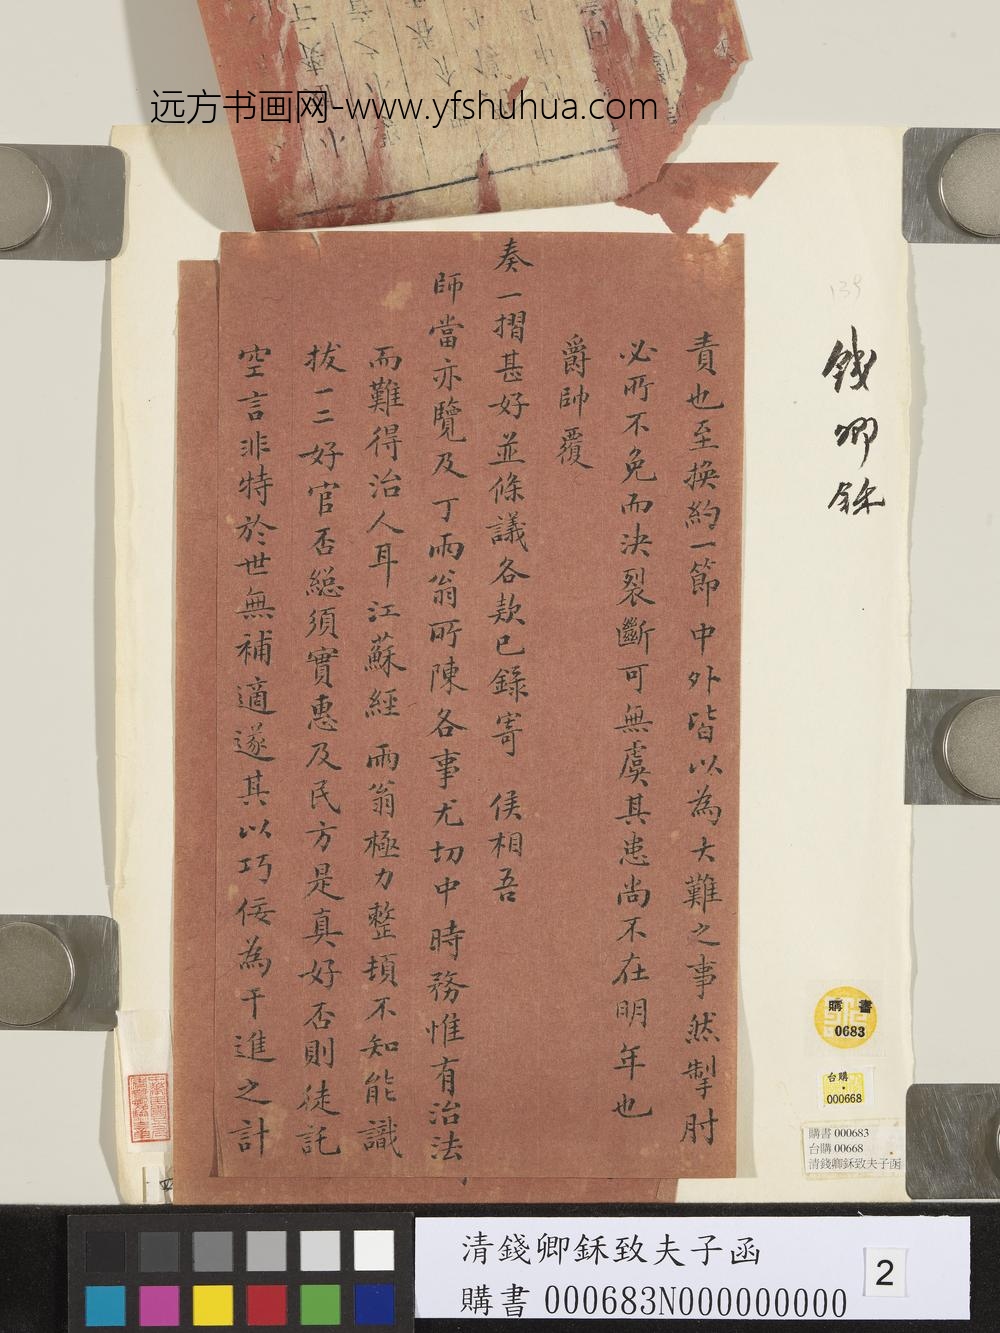 远方书画网-www.yfshuhua.com
責也至換約一節中外皆以為大難之事然掣肘
必所不免而決裂斷可無虞其患尚不在明年也
爵帥覆
奏一摺甚好並條議各款已錄寄 侯相吾
師當亦覽及丁雨翁所陳各事尤切中時務惟有治法
而難得治人耳江蘇經 雨翁極力整頓不知能識
拔一二好官否總須實惠及民方是真好否則徒託
空言非特於世無補適遂其以巧佞為干進之計
139
錢卿鉌
購書
0683
台購
000668
購書 000683
台購 00668
清錢卿鉌致夫子函
清錢卿鉌致夫子函
購書 000683N000000000
2